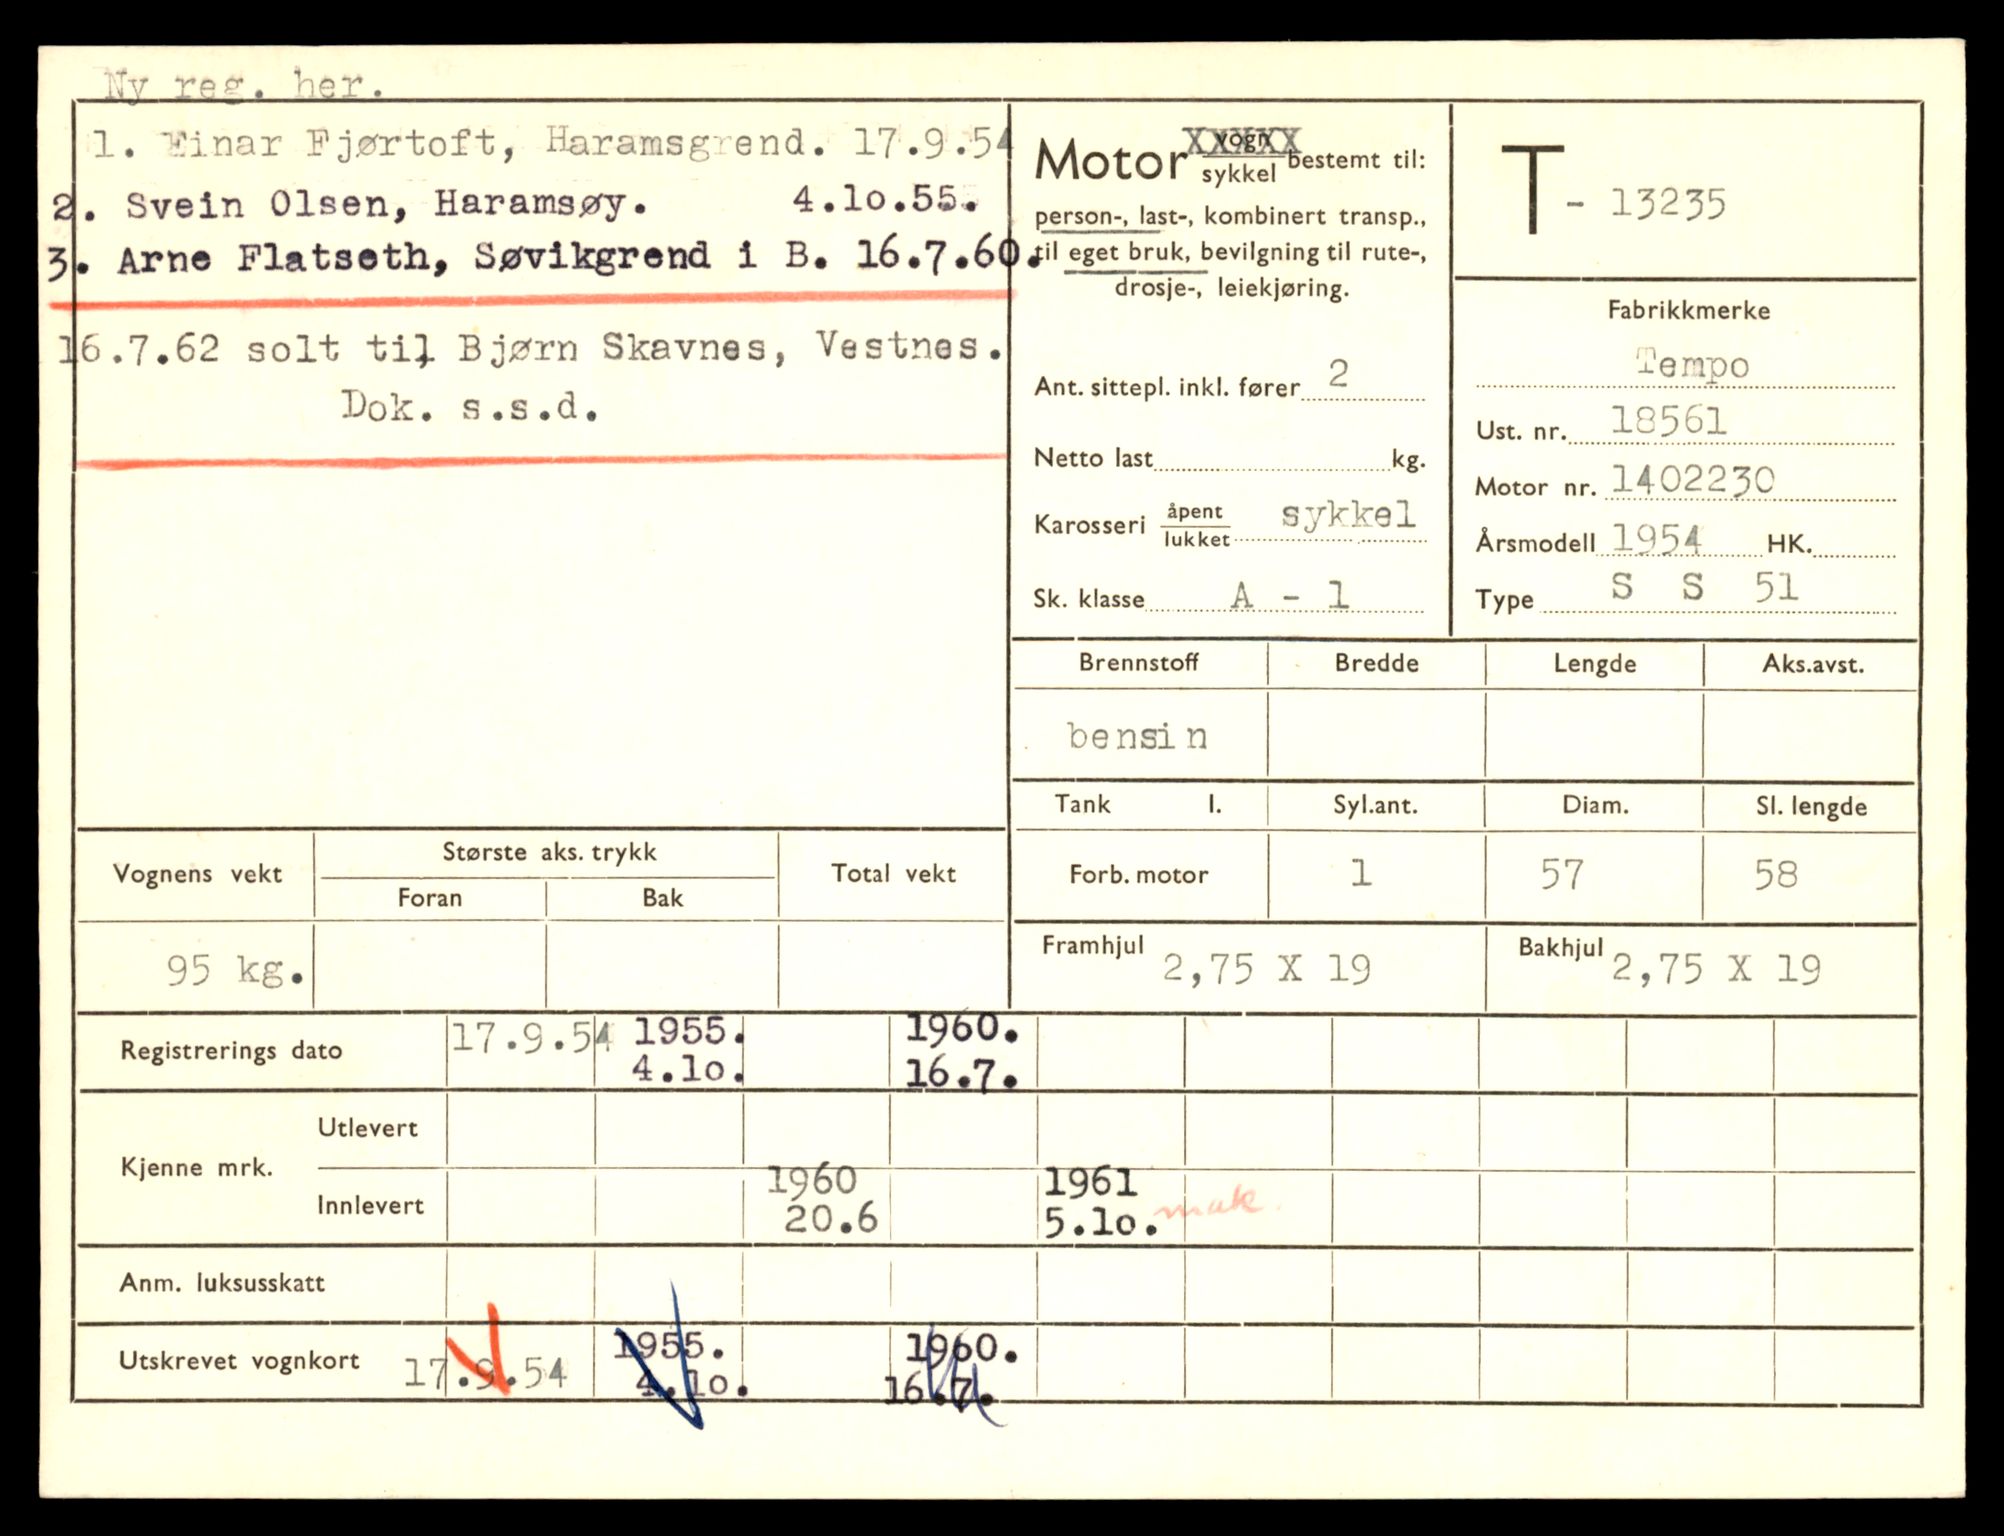 Ny reg. her.
1. Einar Fjørtoft, Haramsgrend. 17.9.54
2. Svein Olsen, Haramsøy. 4.10.55.
3. Arne Flatseth, Søvikgrend i B. 16.7.60.
16.7.62 solt til Bjørn Skavnes, Vestnes.
Dok. s.s.d.
Motor vogn XXXXX
sykkel bestemt til:
person-, last-, kombinert transp.,
til eget bruk, bevilgning til rute-,
drosje-, leiekjøring.
Ant. sittepl. inkl. fører 2
Netto last kg.
Karosseri åpent
lukket sykkel
Sk. klasse A - 1
T - 13235
Fabrikkmerke
Tempo
Ust. nr. 18561
Motor nr. 1402230
Årsmodell 1954 HK.
Type S S 51
Brennstoff Bredde Lengde Aks.avst.
bensin
Tank l. Syl.ant. Diam. Sl. lengde
Forb. motor 1 57 58
Framhjul 2,75 X 19 Bakhjul 2,75 X 19
Vognens vekt Største aks. trykk Total vekt
Foran Bak
95 kg.
Registrerings dato 17.9.54 1955. 1960.
4.10. 16.7.
Kjenne mrk. Utlevert
Innlevert 1960 1961
20.6 5.10. mak.
Anm. luksusskatt
Utskrevet vognkort 17.9.54 1955. 1960.
4.10. 16.7.